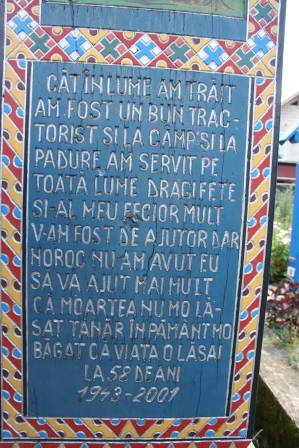 CÂT ÎN LUME AM TRĂIT
AM FOST UN BUN TRAC-
TORIST SI LA CÂMP SI LA
PADURE AM SERVIT PE
TOATĂ LUME DRAGI FETE
SI-AL MEU FECIOR MULT
V-AH FOST DE AJUTOR DAR
NOROC NU AM AVUT EU
SĂ VĂ AJUT MAI MULT
CĂ MOARTEA NU MO LĂ-
SAT TANĂR IN PĂMÂNT MO
BĂGAT CĂ VIATA O LĂSAI
LA 58 DE ANI
1943-2001